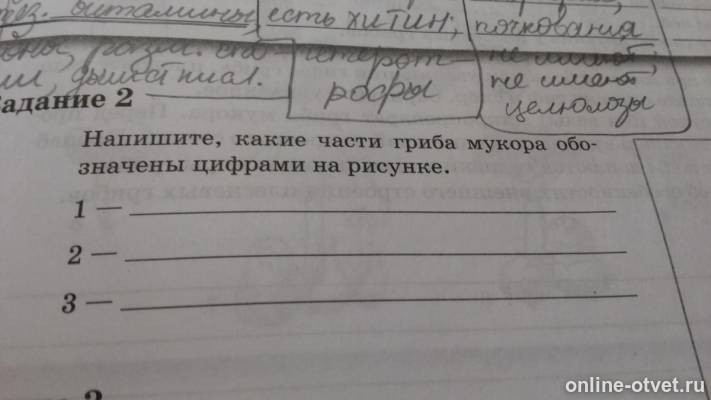 витамины, есть хитин, почкования
разм. спо- гетерот- не имеют,
дышст пиал. рофы не имеют
целюлозы
Задание 2
Напишите, какие части гриба мукора обо-
значены цифрами на рисунке.
1 —
2 —
3 —
online-otvet.ru